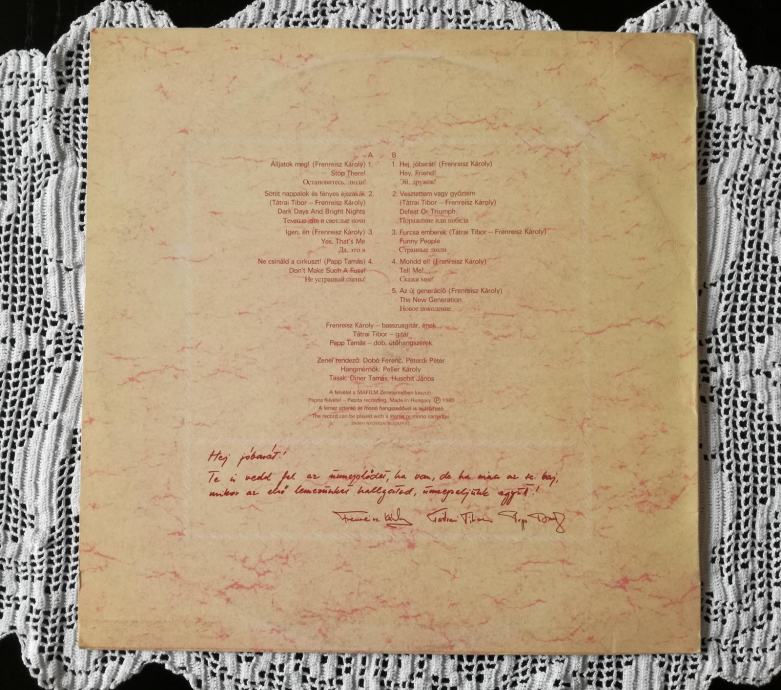 A
Álljatok meg! (Frenreisz Károly) 1.
Stop There!
Остановитесь, люди!
Sötét nappalok és fényes éjszakák 2.
(Tátrai Tibor – Frenreisz Károly)
Dark Days And Bright Nights
Темные дни и светлые ночи
Igen, én (Frenreisz Károly) 3.
Yes, That's Me
Да, это я
Ne csináld a cirkuszt! (Papp Tamás) 4.
Don't Make Such A Fuss!
Не устраивай сцены!
B
1. Hej, jóbarát! (Frenreisz Károly)
Hey, Friend!
Эй, дружок!
2. Vesztettem vagy győztem
(Tátrai Tibor – Frenreisz Károly)
Defeat Or Triumph
Поражение или победа
3. Furcsa emberek (Tátrai Tibor – Frenreisz Károly)
Funny People
Странные люди
4. Mondd el! (Frenreisz Károly)
Tell Me!
Скажи мне!
5. Az új generáció (Frenreisz Károly)
The New Generation
Новое поколение
Frenreisz Károly – basszusgitár, ének
Tátrai Tibor – gitár
Papp Tamás – dob, ütőhangszerek
Zenei rendező: Dobó Ferenc, Péterdi Péter
Hangmérnök: Peller Károly
Tasak: Diner Tamás, Huschit János
A felvétel a MAFILM Zenetermében készült
Pepita felvétel – Pepita recording, Made in Hungary Ⓟ 1980
A lemez sztereó és monó hangszedővel is lejátszható
The record can be played with a stereo or mono cartridge
Hej jóbarát!
Te is vedd fel az ünneplődet, ha van, de ha nincs az se baj,
mikor az első lemezünket hallgatod, ünnepeljünk együtt!
Frenreisz Károly Tátrai Tibor Papp Tamás